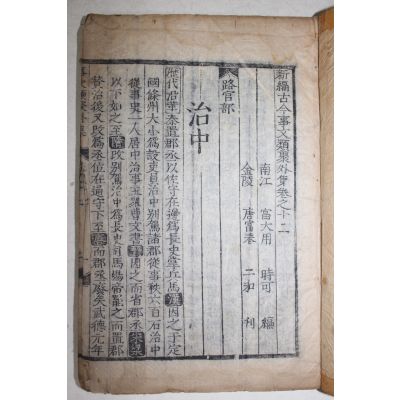 新編古今事文類聚外集卷之十二
南江 富大用 時可 編
金陵 唐富春 二和 利
路官部
治中
歷代沿革秦置郡丞以佐守在邊爲長史掌兵馬漢因之于定
國條州大小爲設吏員治中別駕諸郡從事秩六百石治中
從事史一人居中治事主羣曹文書晉因之而省郡丞
以下如之至隋改別駕治中爲長史司馬煬帝罷之而置郡
贊治後又改爲丞位在通守下至唐而郡丞廢矣武德元年